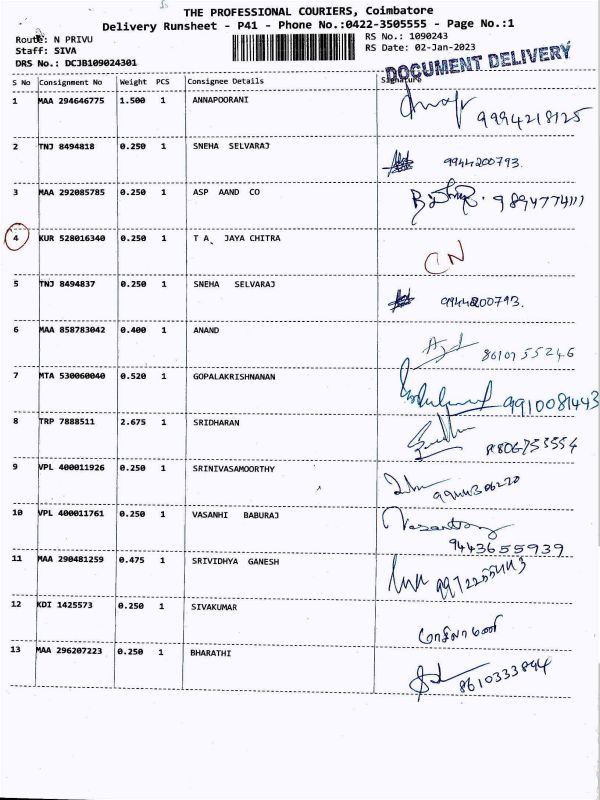 THE PROFESSIONAL COURIERS, Coimbatore
Delivery Runsheet - P41 - Phone No.:0422-3505555 - Page No.:1
Route: N PRIVU RS No.: 1090243
Staff: SIVA RS Date: 02-Jan-2023
DRS No.: DCJB109024301 DOCUMENT DELIVERY
S No Consignment No Weight PCS Consignee Details Signature
1 MAA 294646775 1.500 1 ANNAPOORANI 9994218125
2 TNJ 8494818 0.250 1 SNEHA SELVARAJ 9944200793.
3 MAA 292085785 0.250 1 ASP AAND CO 9894774111
4 KUR 528016340 0.250 1 T A. JAYA CHITRA CN
5 TNJ 8494837 0.250 1 SNEHA SELVARAJ 9944200793.
6 MAA 858783042 0.400 1 ANAND 8610755246
7 MTA 530060040 0.520 1 GOPALAKRISHNANAN 9910081443
8 TRP 7888511 2.675 1 SRIDHARAN
9 VPL 400011926 0.250 1 SRINIVASAMOORTHY
10 VPL 400011761 0.250 1 VASANHI BABURAJ 9443655939
11 MAA 290481259 0.475 1 SRIVIDHYA GANESH
12 KDI 1425573 0.250 1 SIVAKUMAR
13 MAA 296207223 0.250 1 BHARATHI 8610333894